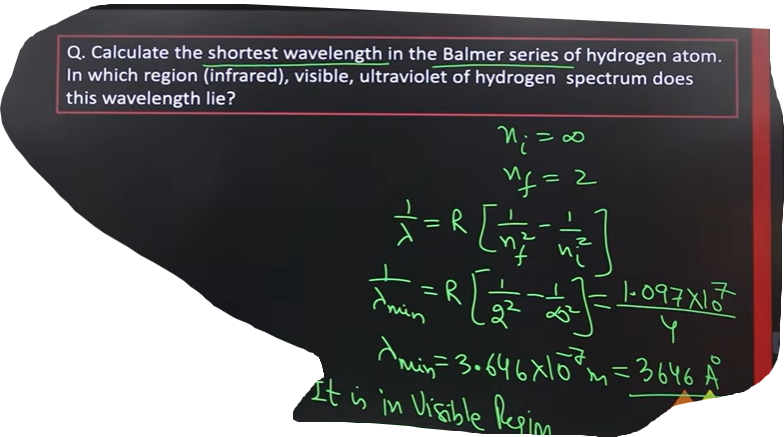 Q. Calculate the shortest wavelength in the Balmer series of hydrogen atom.
In which region (infrared), visible, ultraviolet of hydrogen spectrum does
this wavelength lie?
n_i = ∞
n_f = 2
1/λ = R [1/n_f² - 1/n_i²]
1/λmin = R [1/2² - 1/∞²] = 1.097×10⁷/4
λmin = 3.646×10⁻⁷ m = 3646 Å
It is in Visible Region